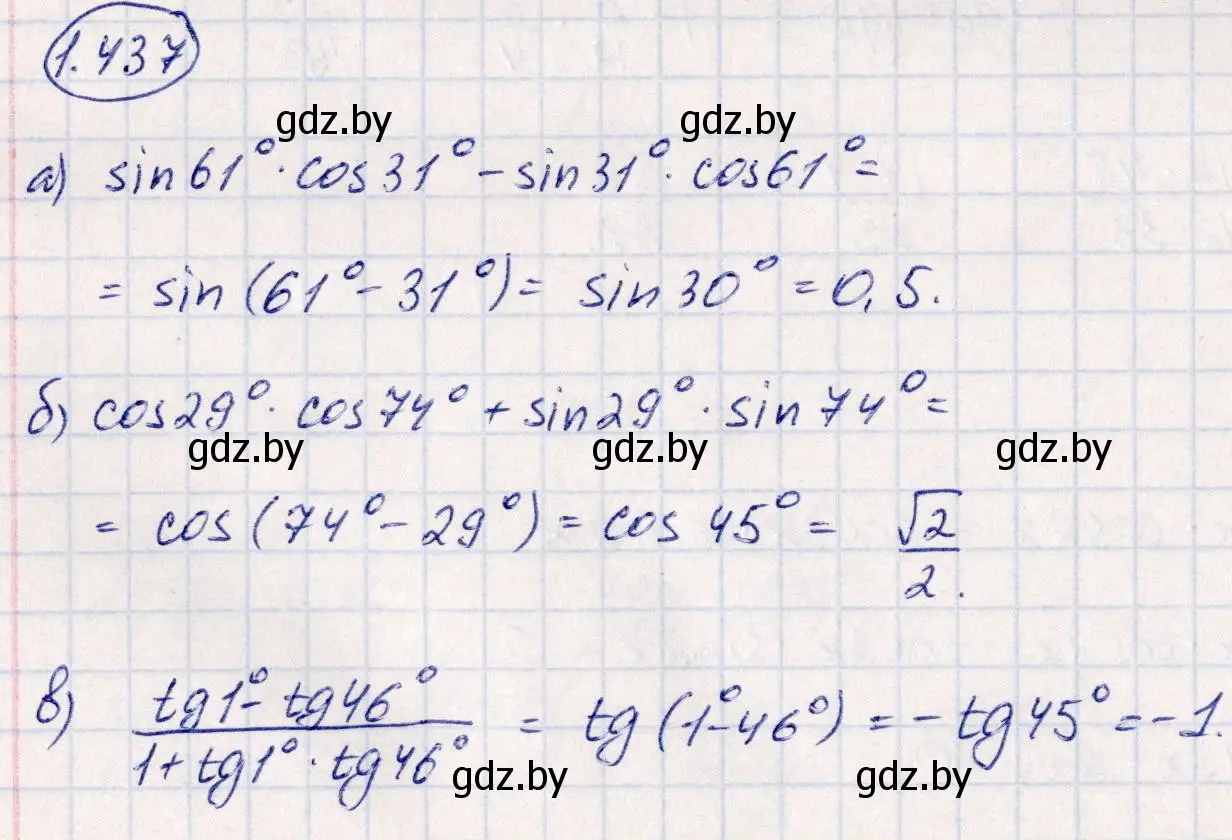 1.437
gdz.by gdz.by
а) sin61°·cos31°-sin31°·cos61°=
= sin(61°-31°)= sin30°=0,5.
б) cos29°·cos74°+sin29°·sin74°=
gdz.by gdz.by gdz.by
= cos(74°-29°)=cos45°= √2/2.
в) (tg1°-tg46°)/(1+tg1°·tg46°) = tg(1°-46°)=-tg45°=-1.
gdz.by gdz.by